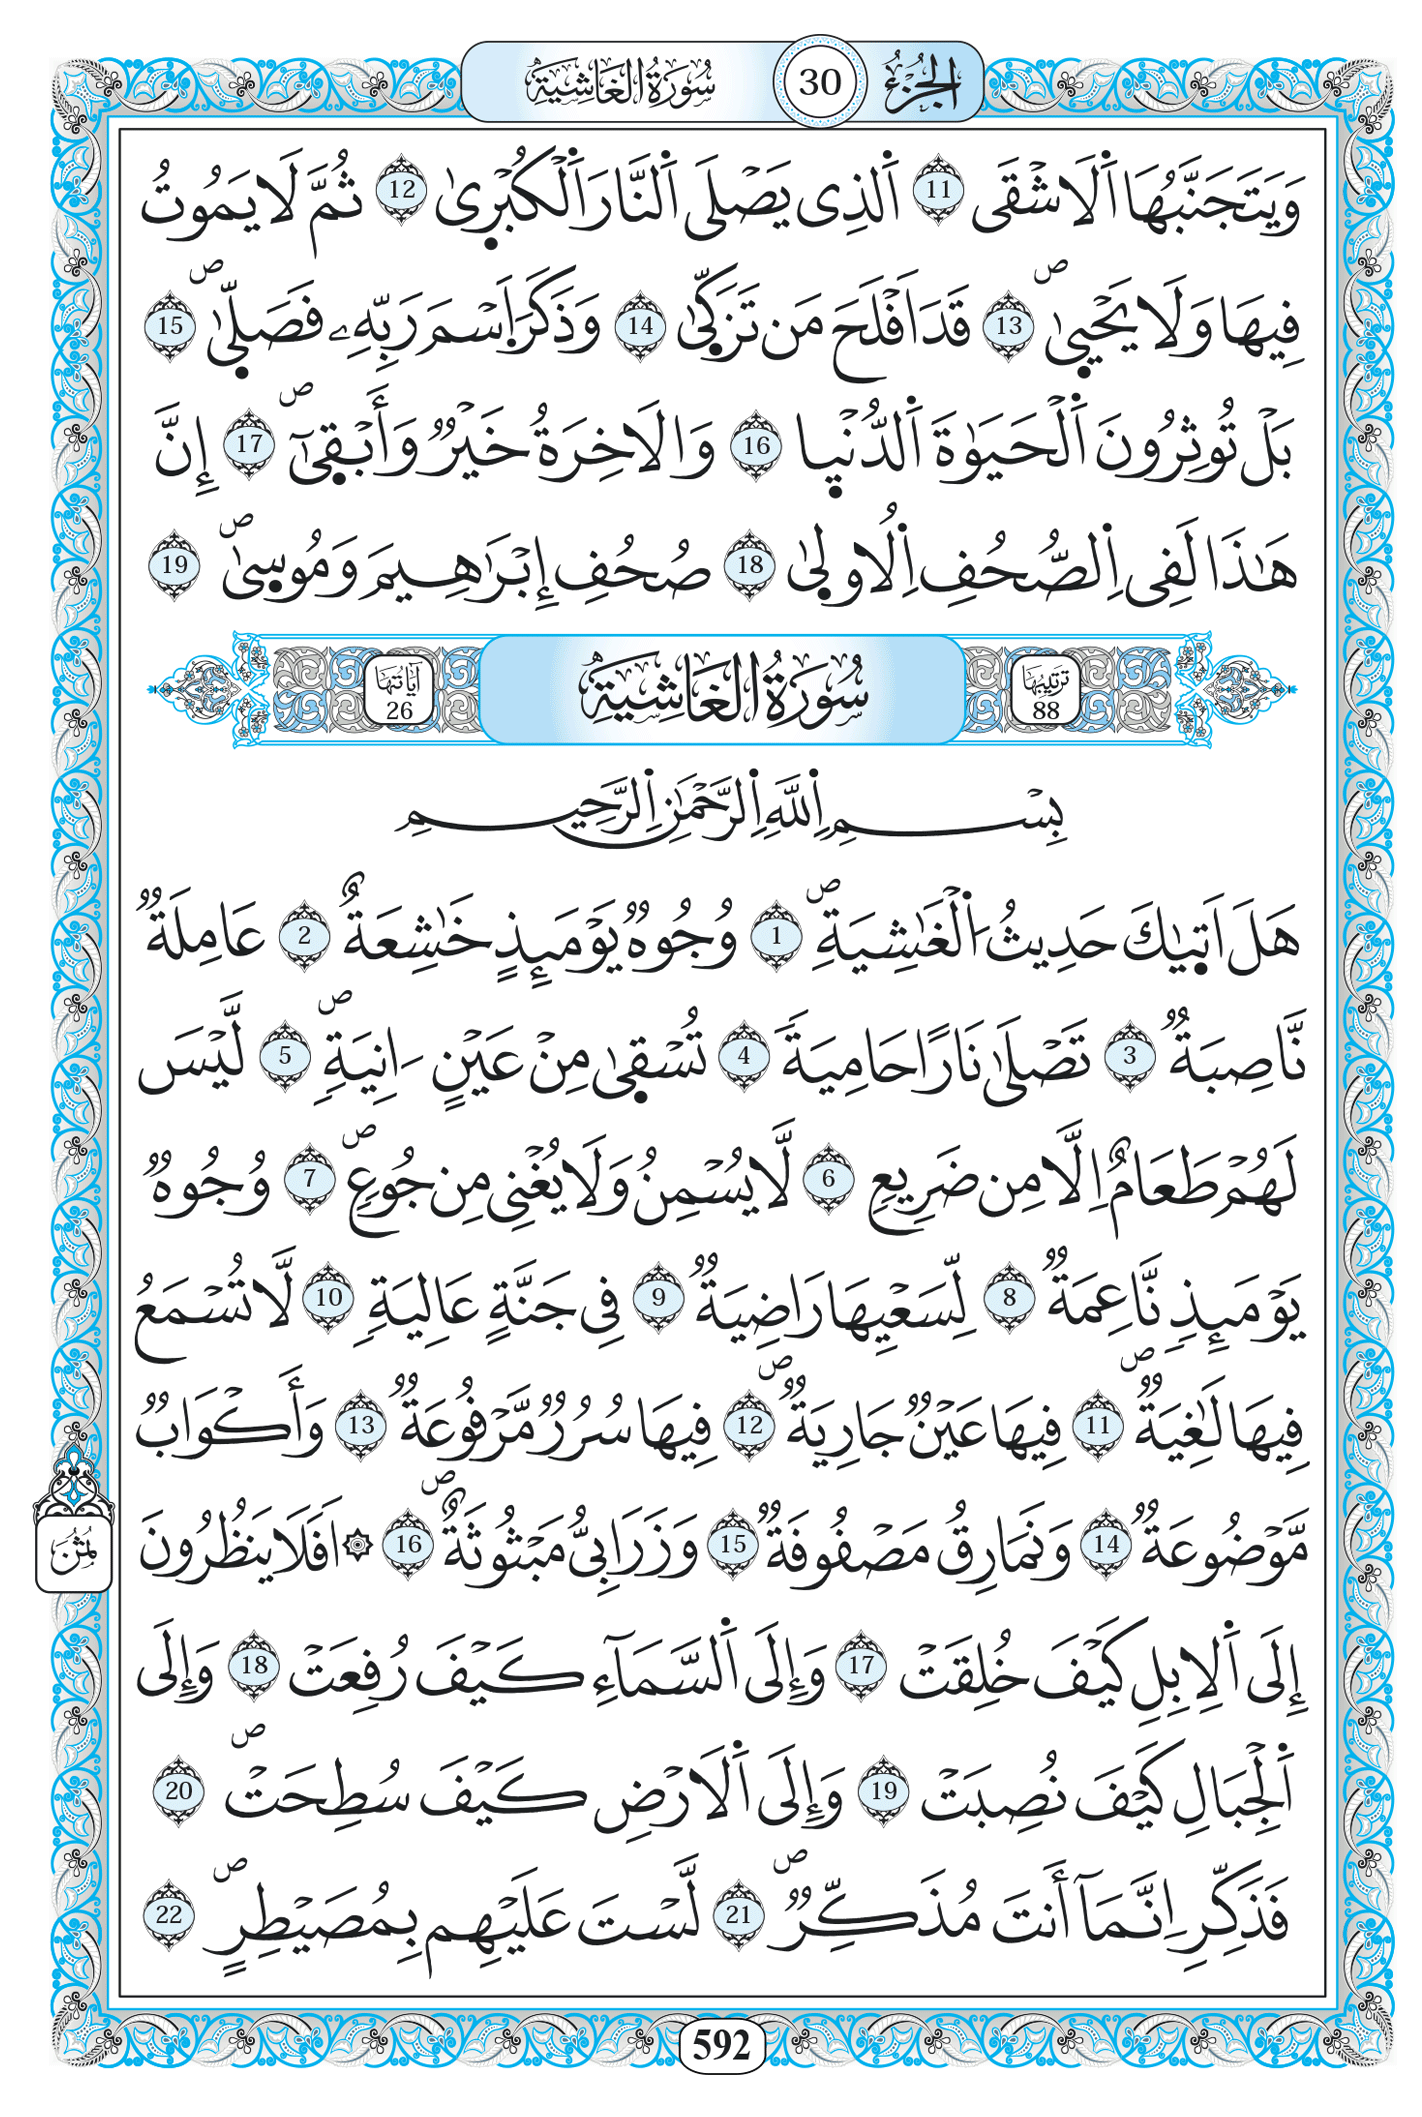 الجزء 30 سورة الغاشية
وَيَتَجَنَّبُهَا اَ۬لَاشْقَى 11 اَ۬لذِے يَصْلَى اَ۬لنَّارَ اَ۬لْكُبْر۪ىٰ 12 ثُمَّ لَا يَمُوتُ
فِيهَا وَلَا يَحْي۪ىٰۖ 13 قَدَ اَفْلَحَ مَن تَزَكّ۪ىٰ 14 وَذَكَرَ اَ۪سْمَ رَبِّهِۦ فَصَلّ۪ىٰۖ 15
بَلْ تُوثِرُونَ اَ۬لْحَيَوٰةَ اَ۬لدُّنْي۪ا 16 وَالَاخِرَةُ خَيْرٞ وَأَبْق۪ىٰٓۖ 17 إِنَّ
هَٰذَا لَفِے اِ۬لصُّحُفِ اِ۬لُاول۪ىٰ 18 صُحُفِ إِبْرَٰهِيمَ وَمُوس۪ىٰۖ 19
ترتيبها 88 سُورَةُ الغَاشِيَةِ آياتها 26
بِسْمِ اِ۬للَّهِ اِ۬لرَّحْمَٰنِ اِ۬لرَّحِيمِ
هَلَ اَت۪يٰكَ حَدِيثُ اُ۬لْغَٰشِيَةِۖ 1 وُجُوهٞ يَوْمَئِذٍ خَٰشِعَةٌ 2 عَامِلَةٞ
نَّاصِبَةٞ 3 تَصْلَىٰ نَارًا حَامِيَةٗ 4 تُسْق۪ىٰ مِنْ عَيْنٍ اٰنِيَةٖۖ 5 لَّيْسَ
لَهُمْ طَعَامٌ اِلَّا مِن ضَرِيعٖ 6 لَّا يُسْمِنُ وَلَا يُغْنِے مِن جُوعٖۖ 7 وُجُوهٞ
يَوْمَئِذٖ نَّاعِمَةٞ 8 لِّسَعْيِهَا رَاضِيَةٞ 9 فِے جَنَّةٍ عَالِيَةٖ 10 لَّا تُسْمَعُ
فِيهَا لَٰغِيَةٞۖ 11 فِيهَا عَيْنٞ جَارِيَةٞۖ 12 فِيهَا سُرُرٞ مَّرْفُوعَةٞ 13 وَأَكْوَابٞ
مَّوْضُوعَةٞ 14 وَنَمَارِقُ مَصْفُوفَةٞ 15 وَزَرَابِيُّ مَبْثُوثَةٌۖ 16 ۞ اَفَلَا يَنظُرُونَ
ثُمُن
إِلَى اَ۬لِابِلِ كَيْفَ خُلِقَتْ 17 وَإِلَى اَ۬لسَّمَآءِ كَيْفَ رُفِعَتْ 18 وَإِلَى
اَ۬لْجِبَالِ كَيْفَ نُصِبَتْ 19 وَإِلَى اَ۬لَارْضِ كَيْفَ سُطِحَتْۖ 20
فَذَكِّرِ اِنَّمَآ أَنتَ مُذَكِّرٞۖ 21 لَّسْتَ عَلَيْهِم بِمُصَيْطِرٍۖ 22
592